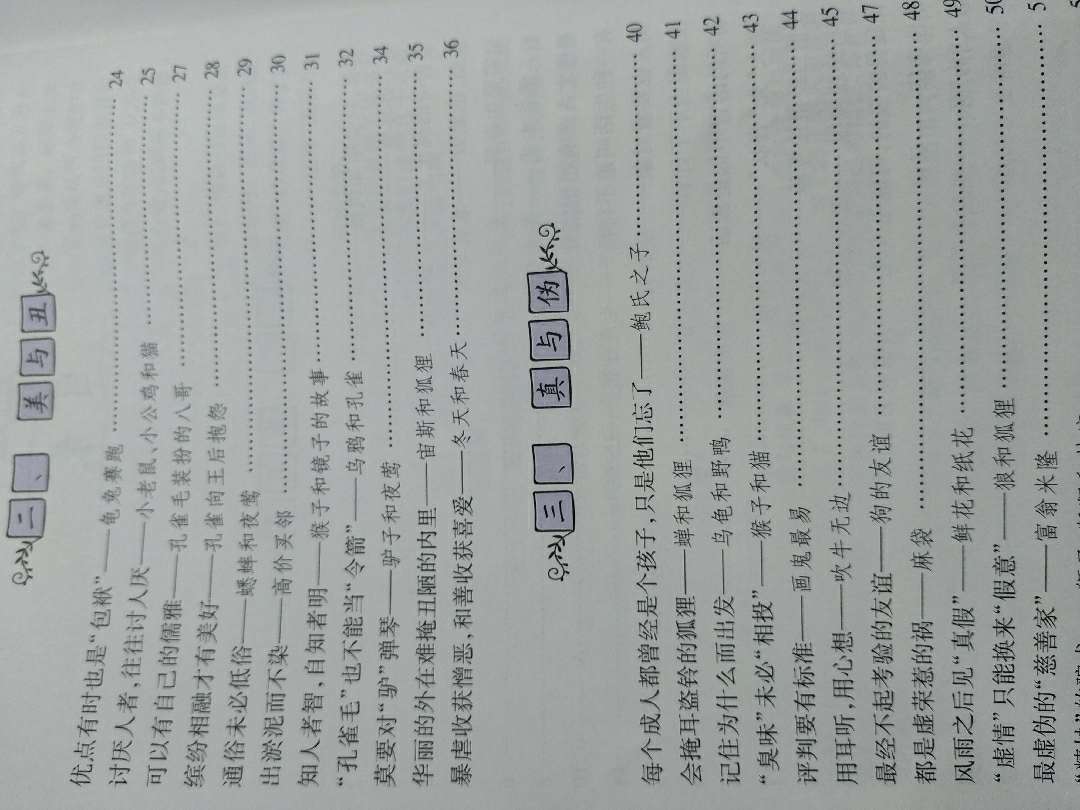 二、美与丑
优点有时也是“包袱”——龟兔赛跑 24
讨厌人者，往往讨人厌——小老鼠、小公鸡和猫 25
可以有自己的儒雅——孔雀毛装扮的八哥 27
缤纷相融才有美好——孔雀向王后抱怨 28
通俗未必低俗——蟋蟀和夜莺 29
出淤泥而不染——高价买邻 30
知人者智，自知者明——猴子和镜子的故事 31
“孔雀毛”也不能当“令箭”——乌鸦和孔雀 32
莫要对“驴”弹琴——驴子和夜莺 34
华丽的外在难掩丑陋的内里——宙斯和狐狸 35
暴虐收获憎恶，和善收获喜爱——冬天和春天 36
三、真与伪
每个成人都曾经是个孩子，只是他们忘了——鲍氏之子 40
会掩耳盗铃的狐狸——蝉和狐狸 41
记住为什么而出发——乌龟和野鸭 42
“臭味”未必“相投”——猴子和猫 43
评判要有标准——画鬼最易 44
用耳听，用心想——吹牛无边 45
最经不起考验的友谊——狗的友谊 47
都是虚荣惹的祸——麻袋 48
风雨之后见“真假”——鲜花和纸花 49
“虚情”只能换来“假意”——狼和狐狸 50
最虚伪的“慈善家”——富翁米隆 5